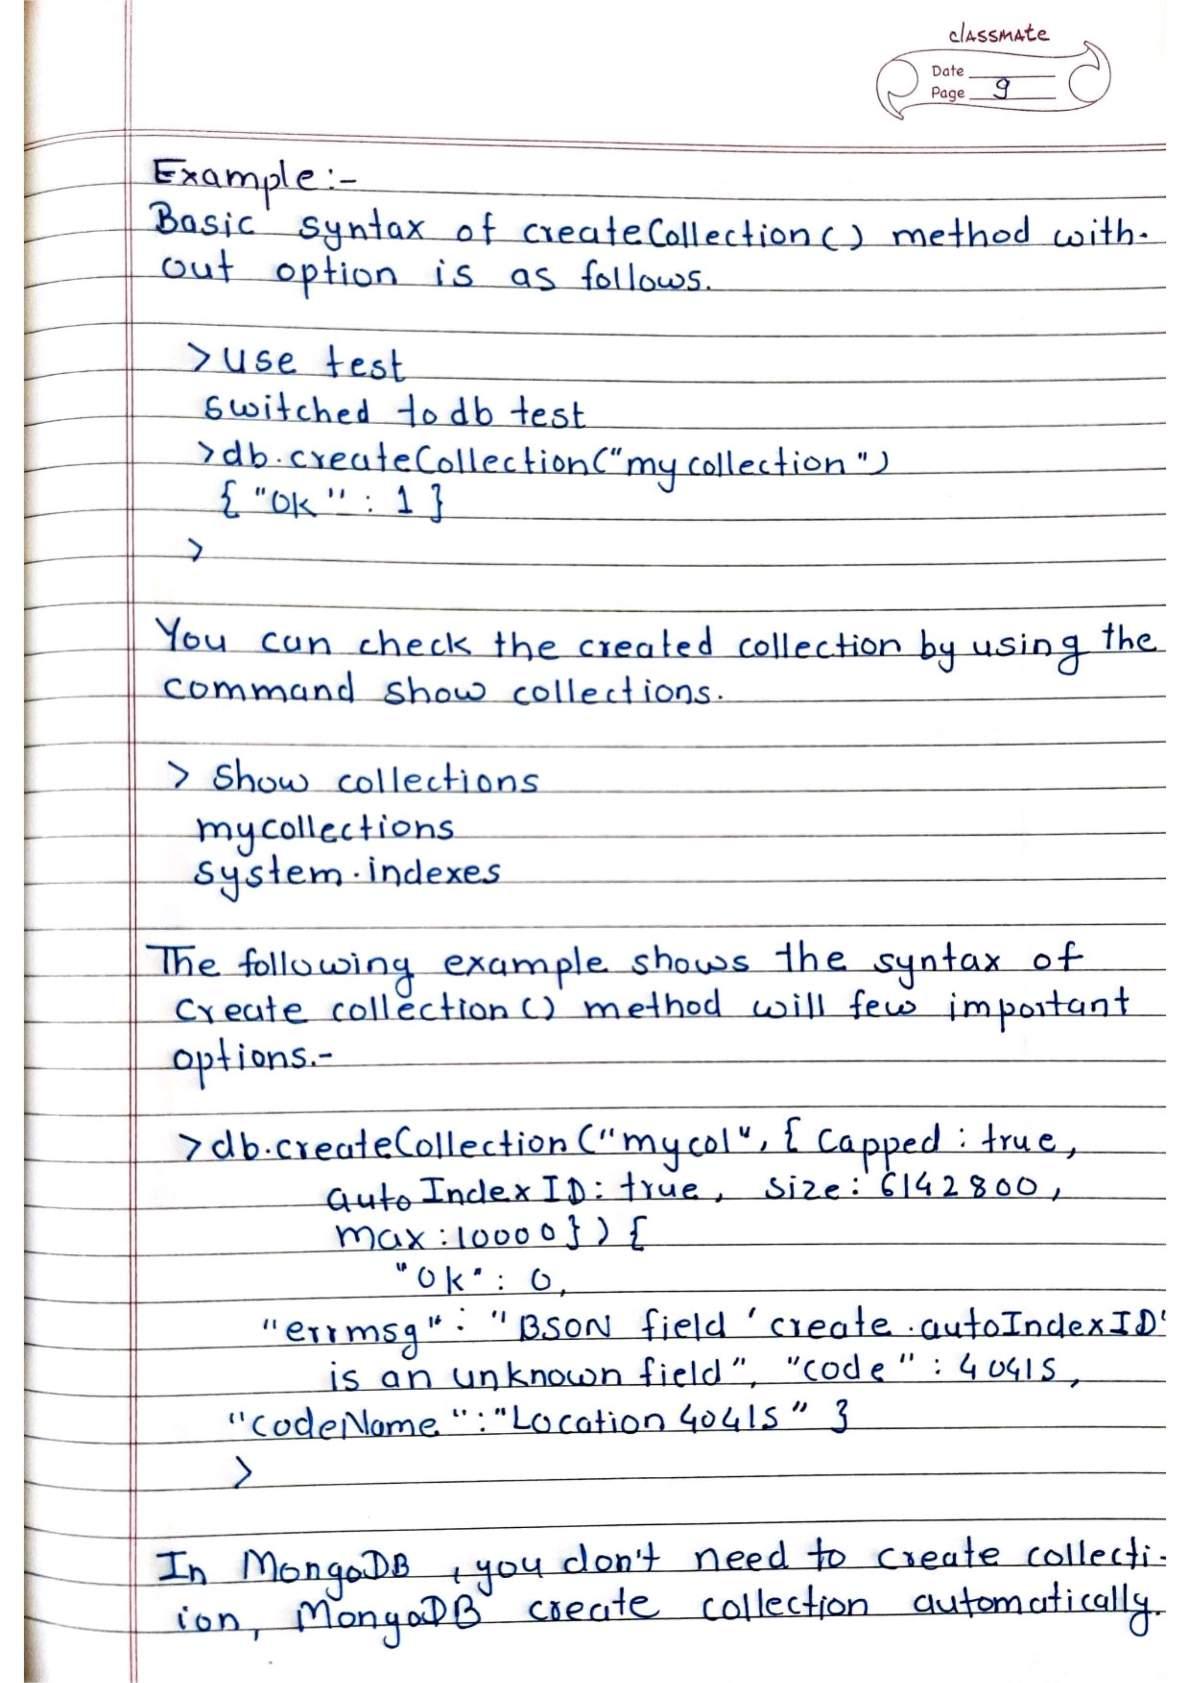 classmate
Date
Page 9
Example:-
Basic syntax of createCollection() method with-
out option is as follows.
>use test
switched to db test
>db.createCollection("mycollection")
{ "ok" : 1 }
>
You can check the created collection by using the
command show collections.
> show collections
mycollections
system.indexes
The following example shows the syntax of
Create collection() method will few important
options.-
>db.createCollection("mycol", { Capped : true,
auto IndexID: true, size: 6142800,
max : 10000 } ) {
"ok" : 0,
"errmsg" : "BSON field 'create.autoIndexID'
is an unknown field", "code" : 40415,
"codeName" : "Location 40415" }
>
In MongoDB , you don't need to create collecti-
ion, MongoDB create collection automatically.